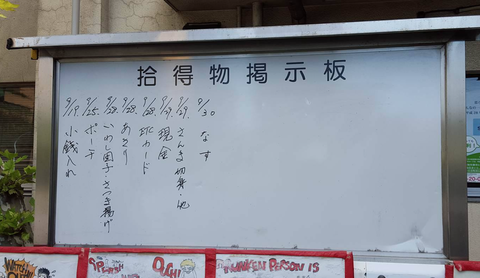 拾得物掲示板
9/30. なす
9/29. さんま切身・他
9/29. 現金
9/28. ICカード
9/28. あさり
9/28. いわし団子・さつま揚げ
9/25. ポーチ
9/19. 小銭入れ
OUCH!
PERSON IS